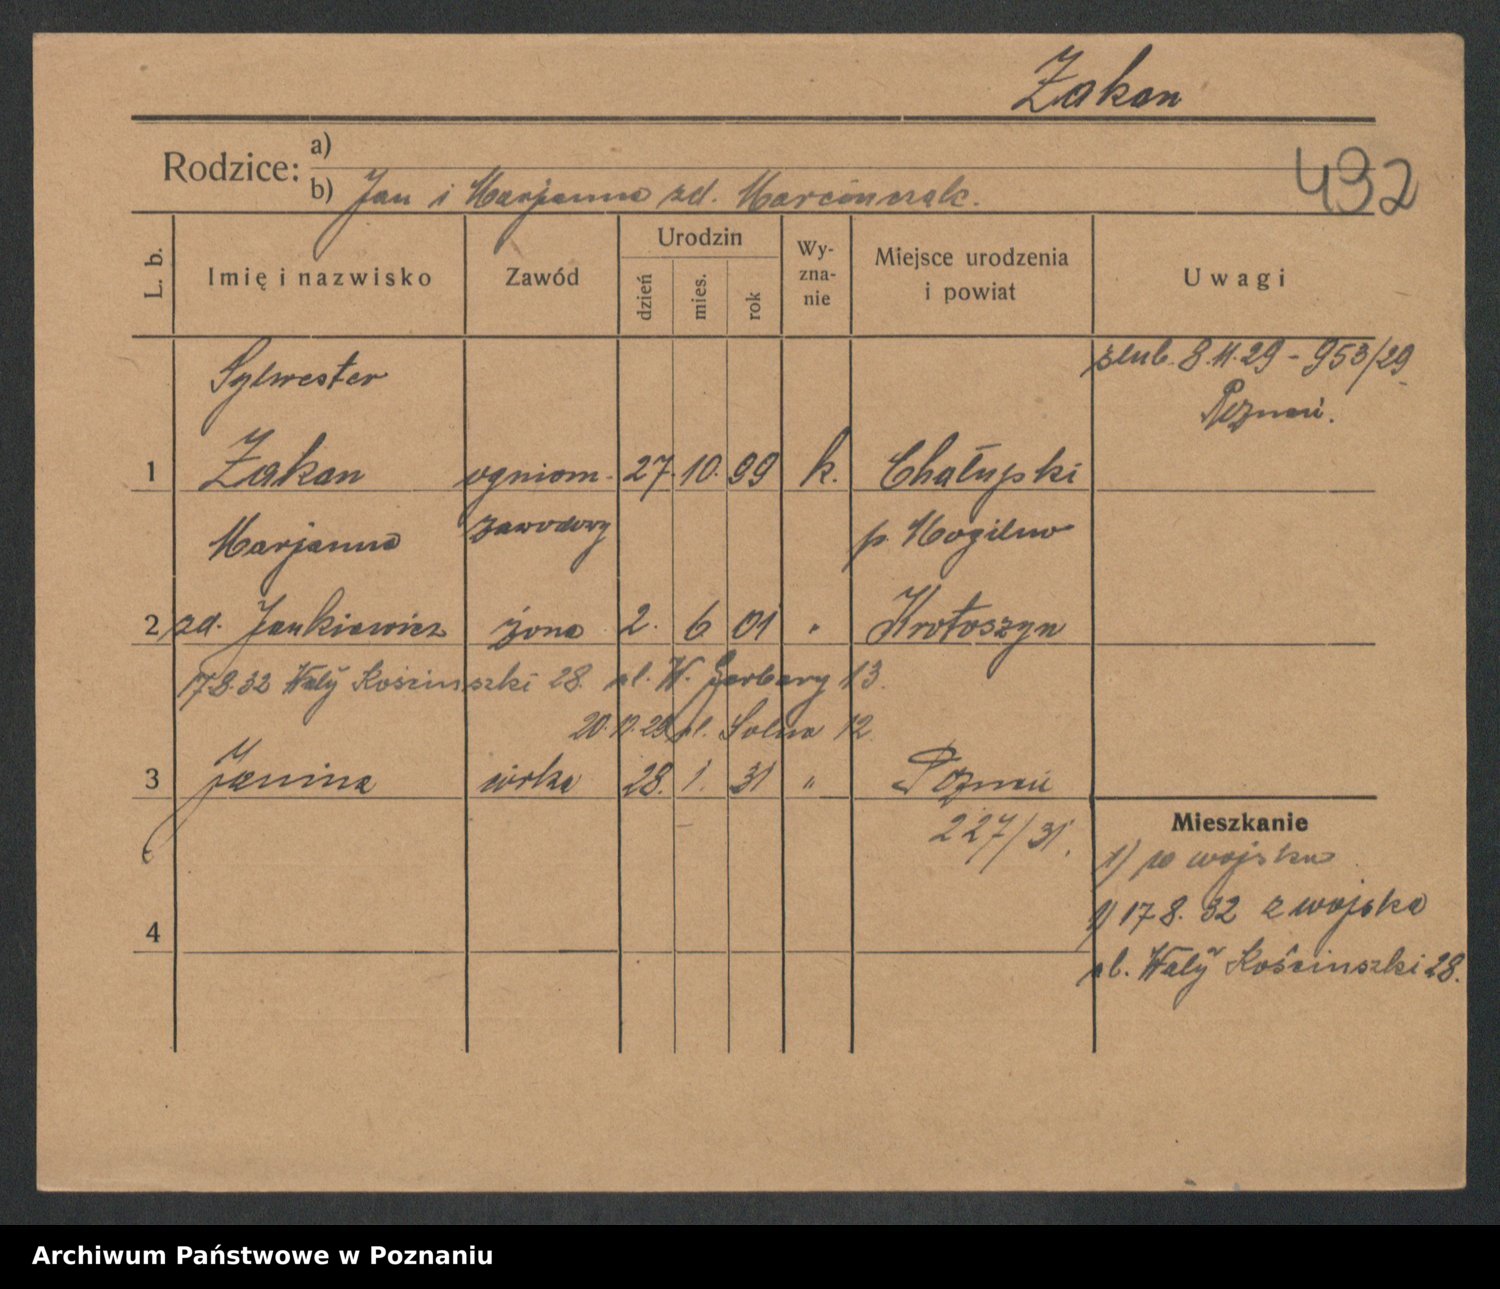 Żakan
432
Rodzice:
a)
b) Jan i Marjanna zd. Marcinczak.
L. b.
Imię i nazwisko
Zawód
Urodzin
dzień
mies.
rok
Wy-
zna-
nie
Miejsce urodzenia
i powiat
Uwagi
ślub. 8.11.29 - 953/29
Poznań.
Sylwester
1 Żakan ogniom. 27. 10. 99 k. Chałupski
zawodowy p. Mogilno
Marjanna
2 zd. Jankiewicz żona 2. 6 01 " Krotoszyn
17.8.32 Wały Kościnszki 28. ul. W. Garbary 13.
20.12.29 ul. Solna 12.
3 Janina córka 28. 1. 31 " Poznań
227/31.
4
Mieszkanie
1) w wojsku
1) 17 8. 32 z wojska
ul. Wały Kościnszki 28.
Archiwum Państwowe w Poznaniu